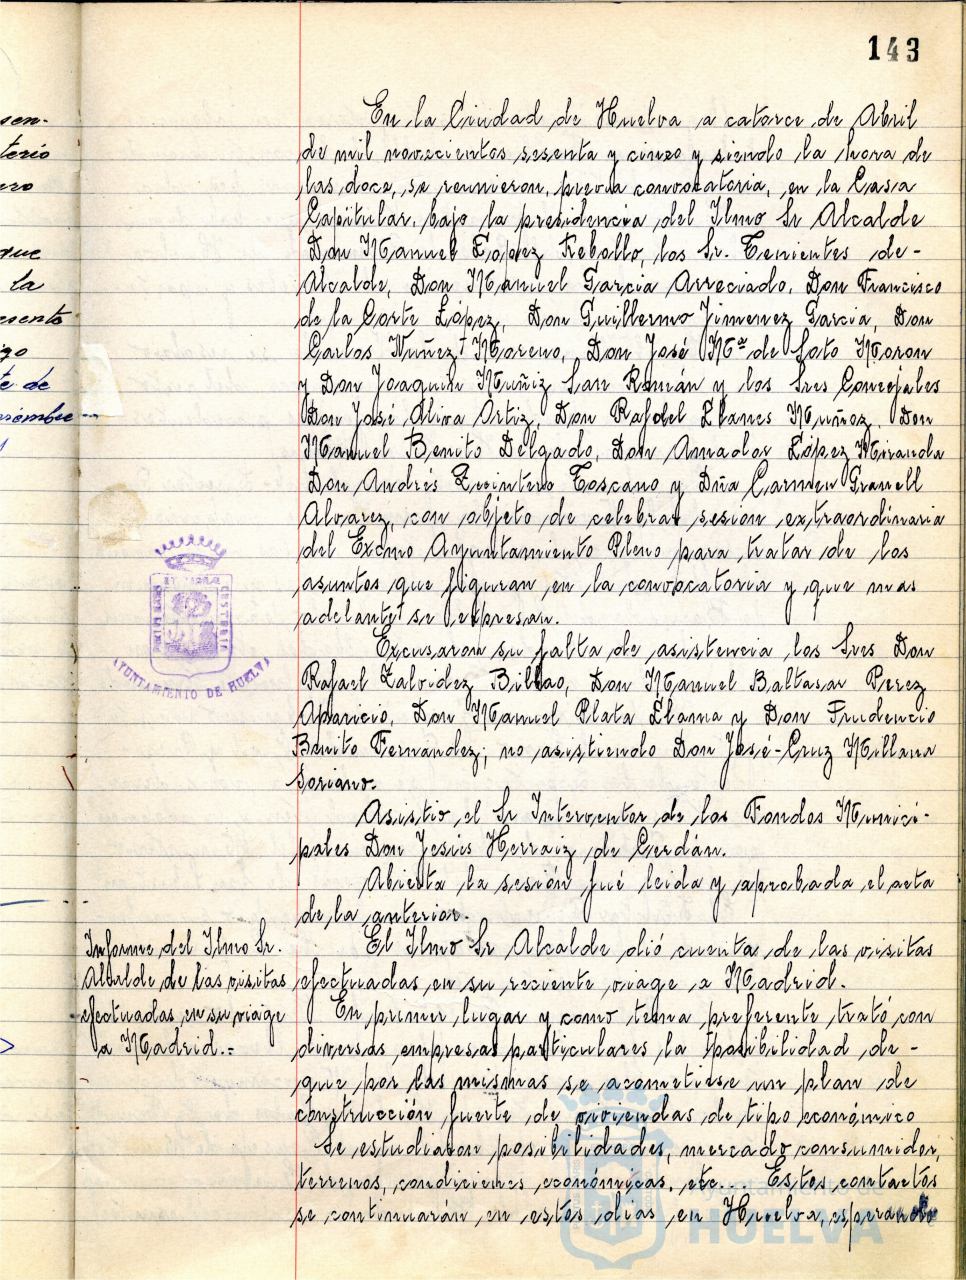 143
sen-
terio
ero
que
la
esento
igo
te de
viembre--
En la Ciudad de Huelva a catorce de Abril
de mil novecientos sesenta y cinco y siendo la hora de
las doce, se reunieron, previa convocatoria, en la Casa
Capitular, bajo la presidencia del Ilmo Sr Alcalde
Don Manuel López Rebollo, los Sr. Tenientes de-
Alcalde, Don Manuel Garcia Arreciado, Don Francisco
de la Corte López, Don Guillermo Jimenez Garcia, Don
Carlos Nuñez Moreno, Don José Mª de Soto Moron
y Don Joaquin Muñiz San Román y los Sres Concejales
Don José Oliva Ortiz, Don Rafael Llanes Muñoz, Don
Manuel Benito Delgado, Don Amador López Miranda
Don Andrés Quintero Toscano y Dña Carmen Granell
Alvarez, con objeto de celebrar sesion extraordinaria
del Excmo Ayuntamiento Pleno para tratar de los
asuntos que figuran en la convocatoria y que mas
adelante se expresan.
Excusaron su falta de asistencia los Sres Don
Rafael Zalvidez Bilbao, Don Manuel Baltasar Perez
Aparicio, Don Manuel Plata Llama y Don Prudencio
Benito Fernandez; no asistiendo Don José-Cruz Millana
Soriano.
Asistio el Sr Interventor de los Fondos Munici-
pales Don Jesús Herraiz de Cerdán.
Abierta la sesión fué leida y aprobada el acta
de la anterior.
Informe del Ilmo Sr.
Alcalde de las visitas
efectuadas en su viage
a Madrid.=
El Ilmo Sr Alcalde dió cuenta de las visitas
efectuadas en su reciente viage a Madrid.
En primer lugar y como tema preferente trató con
diversas empresas particulares la posibilidad de-
que por las mismas se acometiese un plan de
construcción fuerte de viviendas de tipo económico
Se estudiaron posibilidades, mercado consumidor,
terrenos, condiciones económicas, etc... Estos contactos
se continuarán en estos dias en Huelva, esperando
AYUNTAMIENTO DE HUELVA
Ayuntamiento de
HUELVA